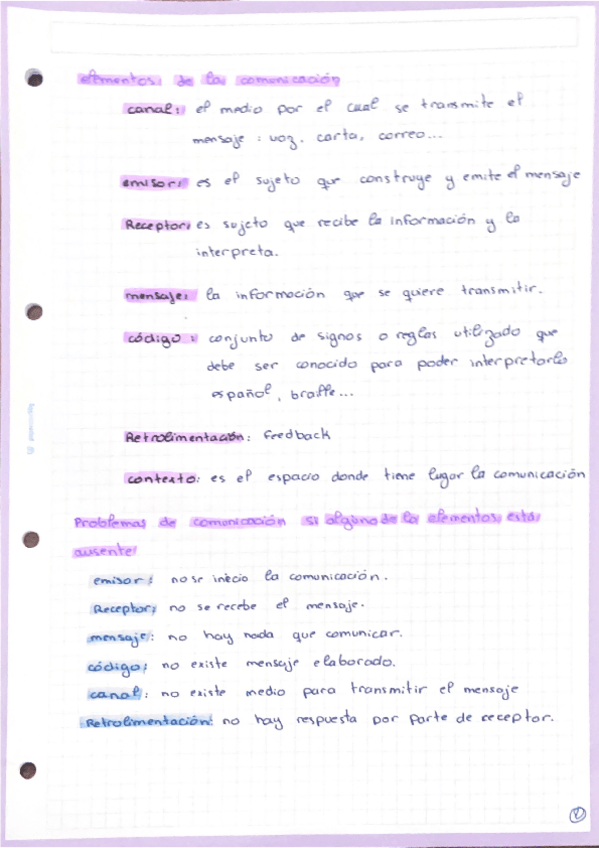 elementos de la comunicación
canal: el medio por el cual se transmite el
mensaje: voz, carta, correo...
emisor: es el sujeto que construye y emite el mensaje
Receptor: es sujeto que recibe la información y la
interpreta.
mensaje: la información que se quiere transmitir.
código: conjunto de signos o reglas utilizado que
debe ser conocido para poder interpretarlo
español, braille...
Retrolimentación: feedback
contexto: es el espacio donde tiene lugar la comunicación
Problemas de comunicación si alguno de los elementos está
ausente
emisor: no se inicio la comunicación.
Receptor: no se recebe el mensaje.
mensaje: no hay nada que comunicar.
código: no existe mensaje elaborado.
canal: no existe medio para transmitir el mensaje
Retrolimentación: no hay respuesta por parte de receptor.